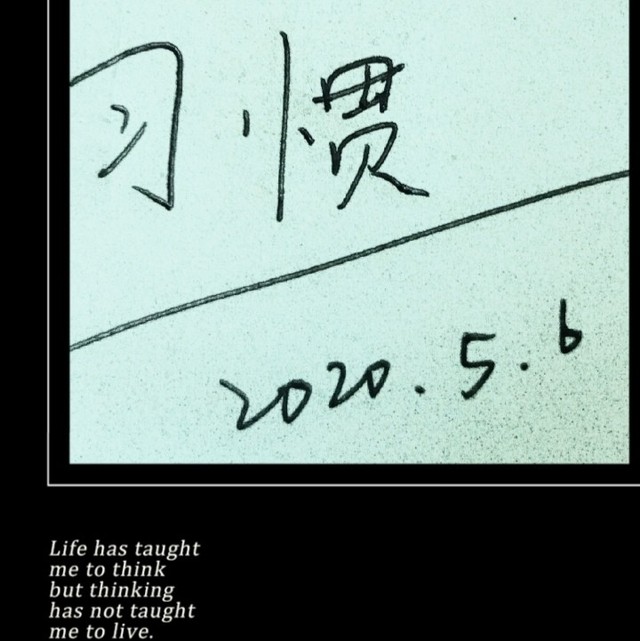 习惯
2020.5.6
Life has taught
me to think
but thinking
has not taught
me to live.